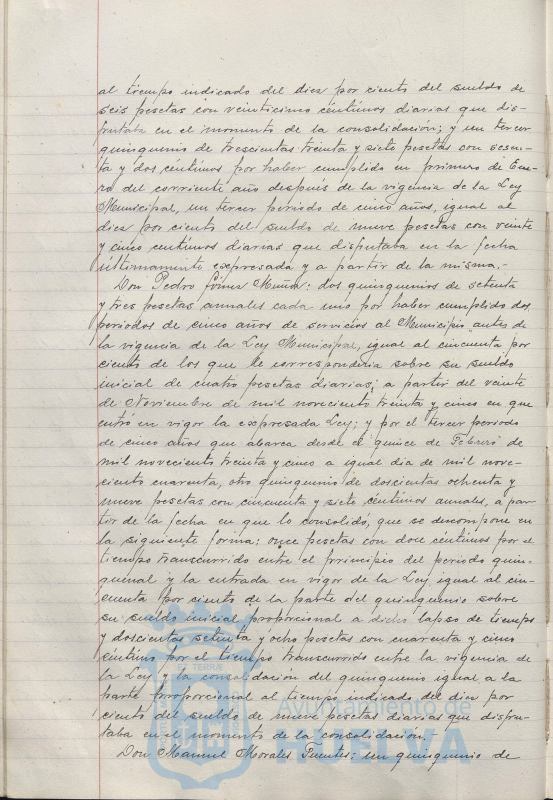 al tiempo indicado del diez por ciento del sueldo de
seis pesetas con veinticinco céntimos diarias que dis-
frutaba en el momento de la consolidación; y un tercer
quinquenio de trescientas treinta y siete pesetas con sesen-
ta y dos céntimos por haber cumplido en primero de Ene-
ro del corriente año después de la vigencia de la Ley
Municipal, un tercer periodo de cinco años, igual al
diez por ciento del sueldo de nueve pesetas con veinte
y cinco céntimos diarias que disfrutaba en la fecha
últimamente expresada y a partir de la misma.-
Don Pedro Gómez Muñoz: dos quinquenios de setenta
y tres pesetas anuales cada uno por haber cumplido dos
periodos de cinco años de servicios al Municipio antes de
la vigencia de la Ley Municipal, igual al cincuenta por
ciento de los que le correspondería sobre su sueldo
inicial de cuatro pesetas diarias, a partir del veinte
de Noviembre de mil novecientos treinta y cinco en que
entró en vigor la expresada Ley; y por el tercer periodo
de cinco años que abarca desde el quince de Febrero de
mil novecientos treinta y cinco a igual dia de mil nove-
ciento cuarenta, otro quinquenio de doscientas ochenta y
nueve pesetas con cincuenta y siete céntimos anuales, a par-
tir de la fecha en que lo consolidó, que se descompone en
la siguiente forma: once pesetas con doce céntimos por el
tiempo transcurrido entre el principio del periodo quin-
quenal y la entrada en vigor de la Ley, igual al cin-
cuenta por ciento de la parte del quinquenio sobre
su sueldo inicial proporcional a dicho lapso de tiempo
y doscientas setenta y ocho pesetas con cuarenta y cinco
céntimo por el tiempo transcurrido entre la vigencia de
la Ley y la consolidación del quinquenio igual a la
parte proporcional al tiempo indicado del diez por
ciento del sueldo de nueve pesetas diarias que disfru-
taba en el momento de la consolidación.
Don Manuel Morales Fuentes: un quinquenio de
Ayuntamiento de
HUELVA